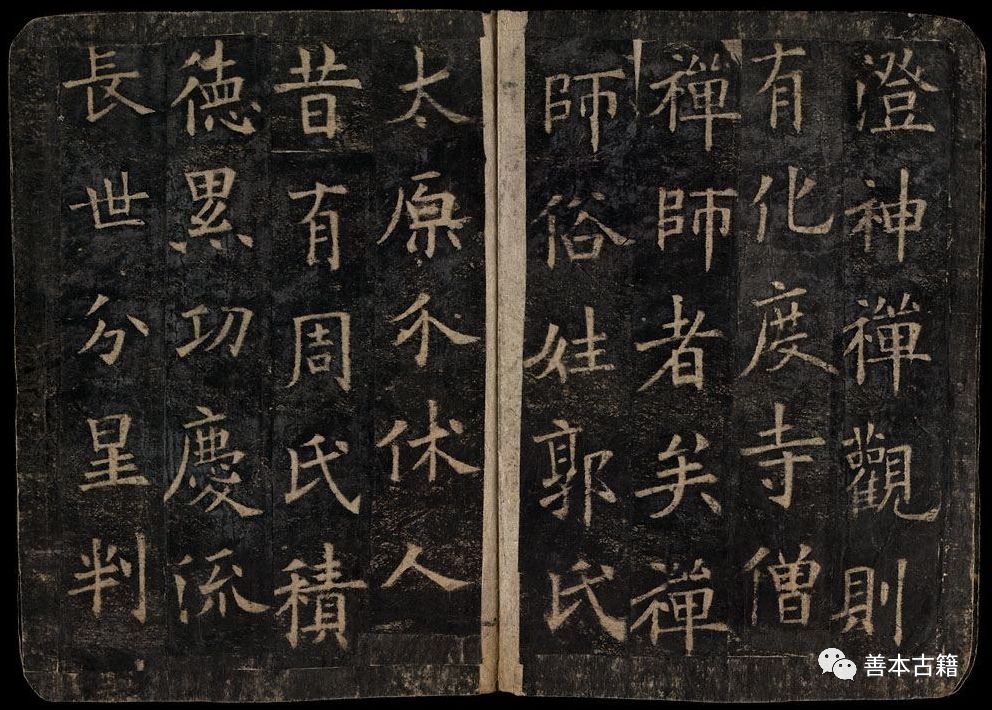 澄神禪觀則
有化度寺僧
禪師者矣禪
師俗姓郭氏
太原介休人
昔有周氏積
德累功慶流
長世分星判
善本古籍